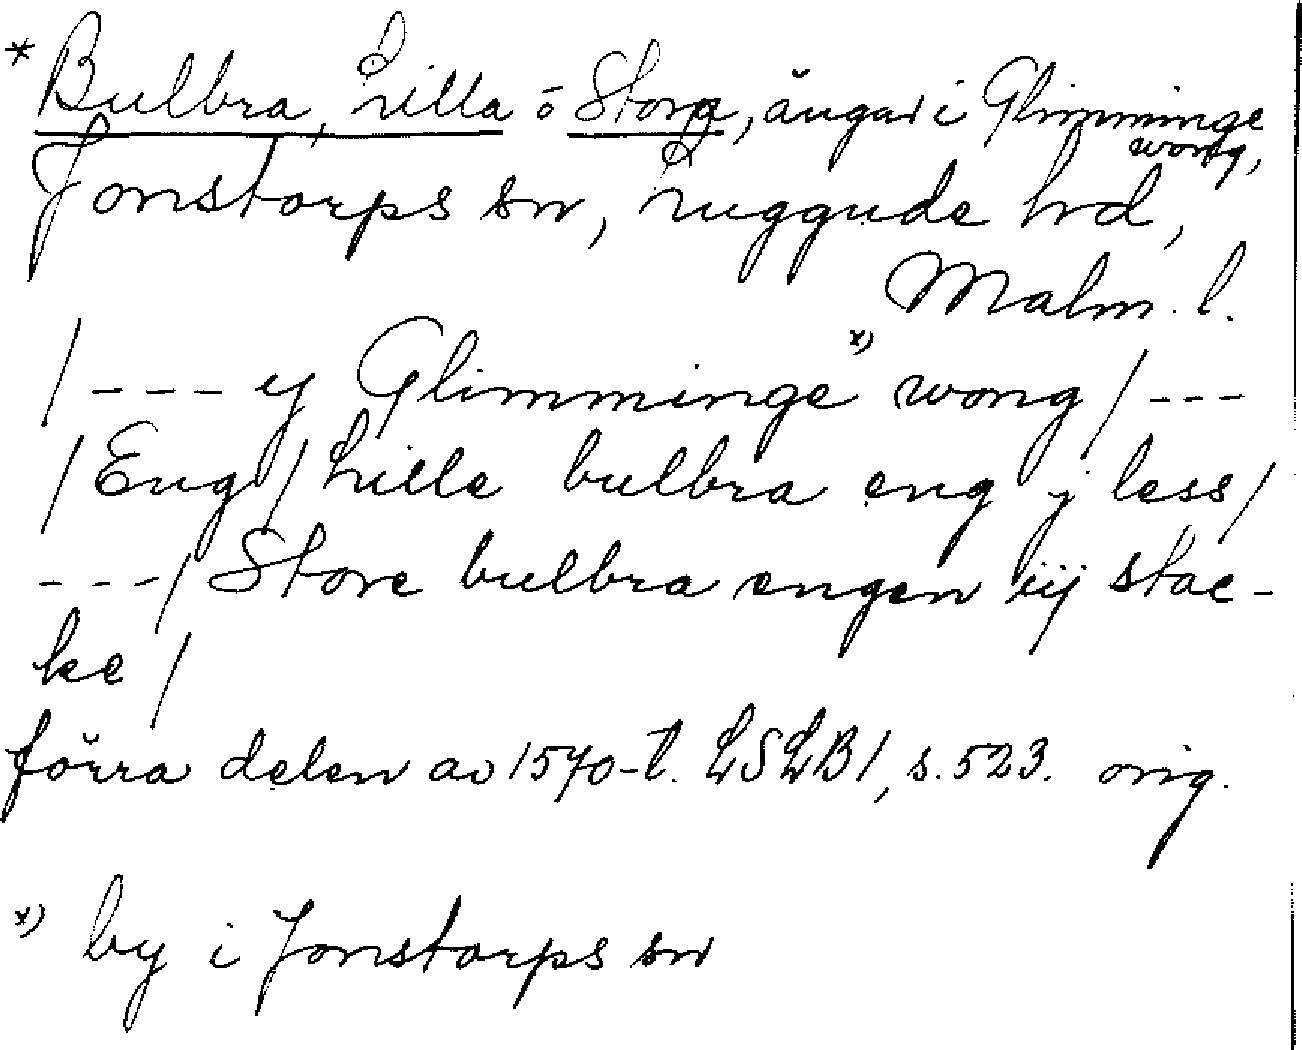 * Bulbra, Lilla o Stora, ängar i Glimminge
wong,
Jonstorps sn, Luggude hd,
Malm. l.
/ - - - y Glimminge x) wong / - - -
/ Eng / Lille bulbra eng j less /
- - - / Store bulbra engen iij stac-
ke /
förra delen av 1570-t. LSLB 1, s. 523. orig.
x) by i Jonstorps sn